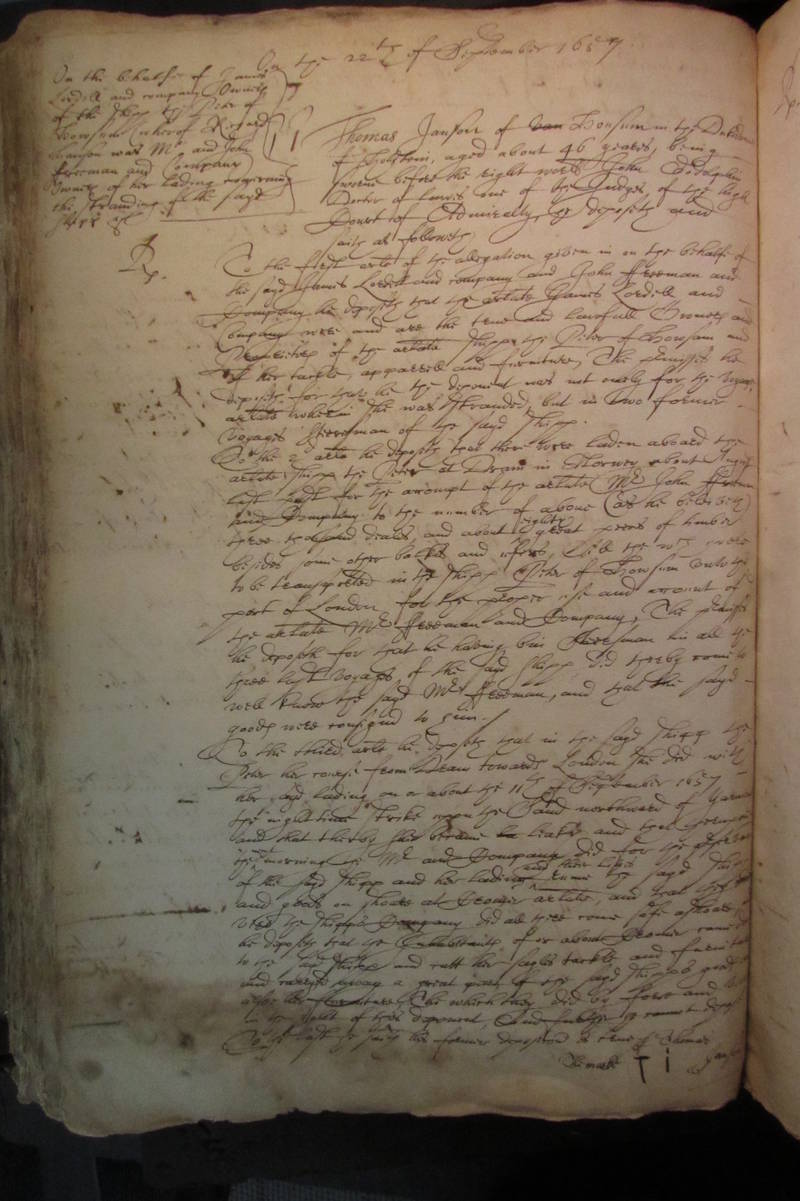 On the 22th of September 1657
On the behalfe of James
Lordell and company Owners
of the shipp the Peter of
Housum whereof Richard
was Mr and John
ffreeman and Company
Owners of her lading concerning
the stranding of the sayd
shipp
Rp.
Thomas Janson of Housum in the Dukedome
of Holstein, aged about 46 yeares, being
sworne before the right worll John Godolphin
Doctor of Lawes one of the Judges of the high
Court of Admiralty deposeth and
saith as followeth
To the first arle of the allegation given in on the behalfe of
the sayd James Lordell and company and John ffreeman and
Company he deposeth that the arlate James Lordell and
Company were and are the true and lawfull Owners and
Proprietors of the arlate shipp the Peter of Housum and
of her tackle, apparrell and furniture, The premisses he
deposeth for that he the deponent was not onely for the voyage
arlate wherein she was stranded, but in two former
voyages Steersman of the sayd shipp.
To the 2 arle he deposeth that there were laden aboard the
arlate shipp the Peter at Dram in Norway about August
last for the accompt of the arlate Mr John ffreeman
and Company to the number of above (as he beleeveth)
three thousand deales, and about eighty great peeces of timber
besides some other and ufers, the wch were
to be transported in the shipp Peter of Housum unto the
port of London for the proper use and accompt of
the arlate Mr ffreeman and Company, The premisses
he deposeth for that he having bin Steersman in all the
three last voyages of the sayd shipp did thereby come to
well know the sayd Mr ffreeman, and that the sayd
goods were consigned to him./
To the third arle he deposeth that in the sayd shipp the
Peter her course from Dram towards London she did with
her sayd lading on or about the 11th of September 1657
the night time strike upon the Sand northward of
and that thereby shee became leakie and that
the next morning the Mr and Company did for the
of the sayd shipp and her lading and their lives runne the sayd shipp
and goods on shoare at arlate, and that the
the shipps Company did all there come safe ashoare,
he deposeth that the Inhabitants of or about came
to the sayd shipp and cutt her sayles tackle and furniture
and carryed away a great part of the sayd shipps goods
The which they did by force and
in the sight of this deponent, And further he cannot depose
To the last he saith his former deposition is true
The marke T i of Thomas
Janson